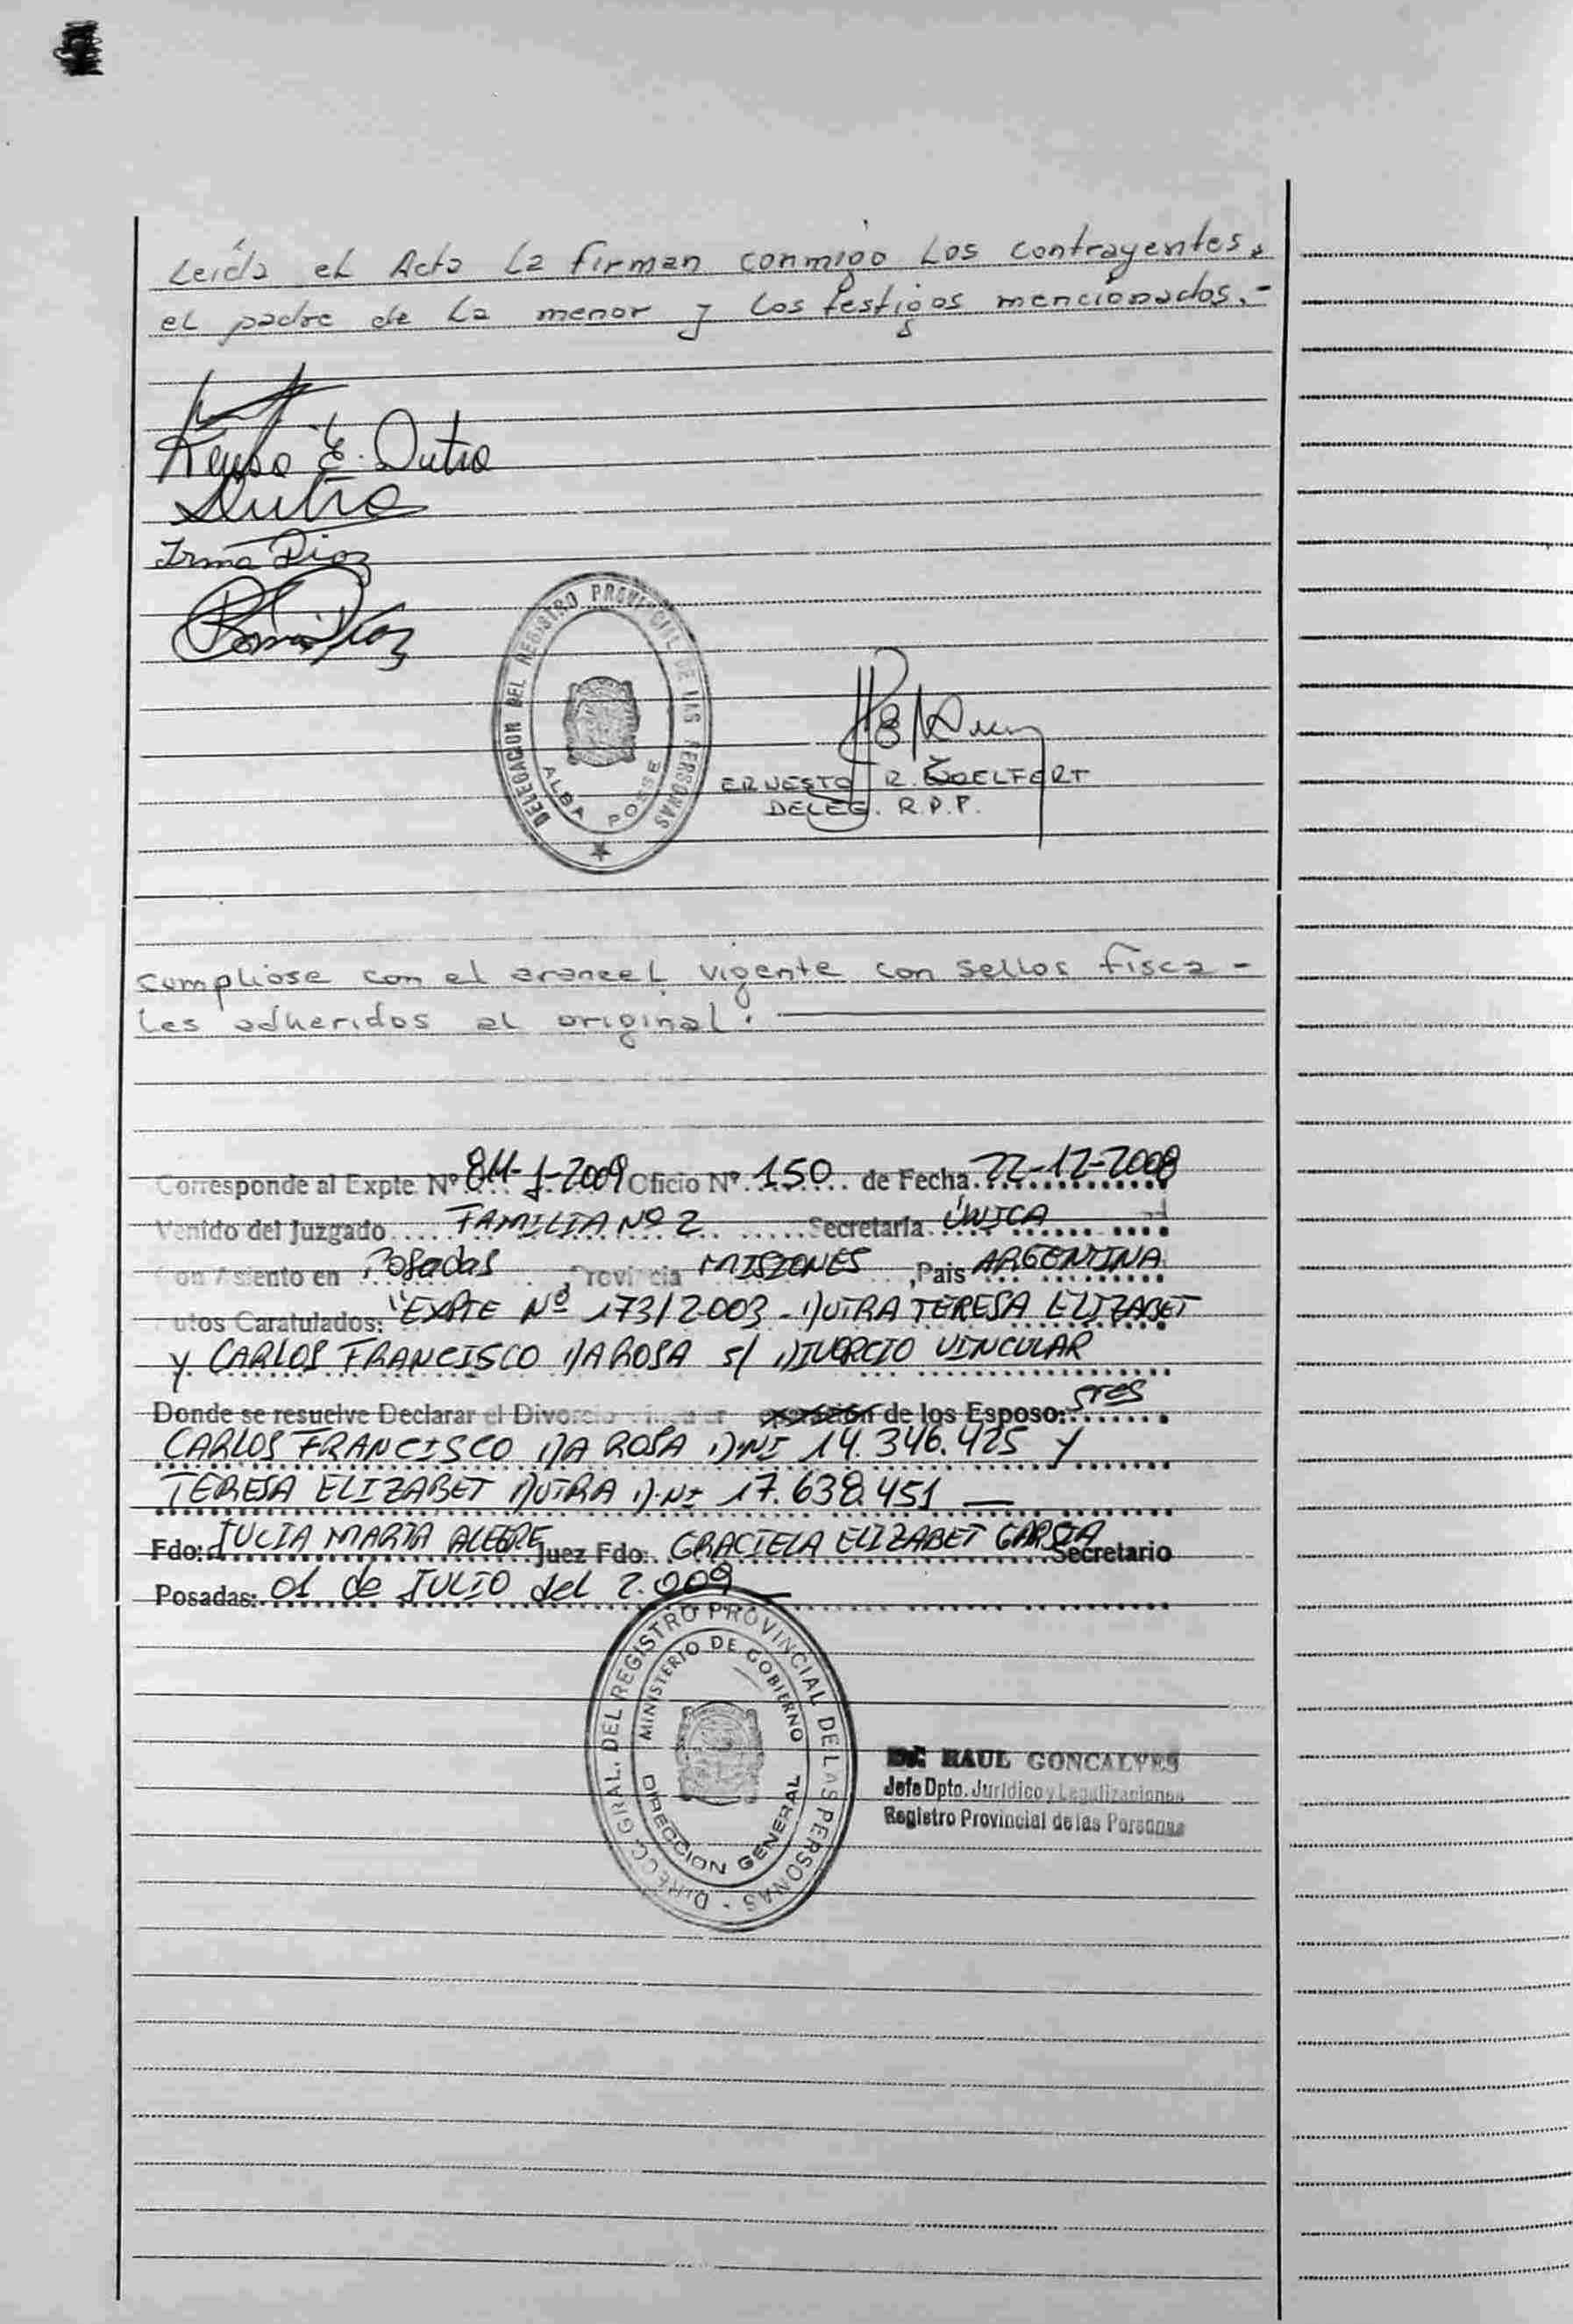 Leída el Acta la firman conmigo los contrayentes,
el padre de la menor y los testigos mencionados.-
E. Dutra
Dutra
Irma Diaz
DELEGACION DEL REGISTRO PROVINCIAL DE LAS PERSONAS
ALBA POSSE
ERNESTO R. WOELFERT
DELEG. R.P.P.
Cumpliose con el arancel vigente con sellos fisca-
les adheridos al original.
Corresponde al Expte Nº 811-J-2009 Oficio Nº 150 de Fecha 22-12-2008
Venido del Juzgado FAMILIA Nº 2 Secretaría ÚNICA
con Asiento en Posadas, Provincia MISIONES, Pais ARGENTINA
utos Caratulados: "EXPTE Nº 173/2003 - DUTRA TERESA ELIZABET
y CARLOS FRANCISCO DA ROSA s/ DIVORCIO VINCULAR
Donde se resuelve Declarar el Divorcio de los Esposo: sres
CARLOS FRANCISCO DA ROSA D.NI 14.346.425 y
TERESA ELIZABET DUTRA D.NI 17.638.451
Fdo: JULIA MARIA ALEGRE Juez Fdo: GRACIELA ELIZABET GARCIA Secretario
Posadas: 01 de JULIO del 2.009
DIRECC. GRAL. DEL REGISTRO PROVINCIAL DE LAS PERSONAS -
MINISTERIO DE GOBIERNO
DIRECCION GENERAL
Dr. RAUL GONCALVES
Jefe Dpto. Jurídico y Legalizaciones
Registro Provincial de las Personas